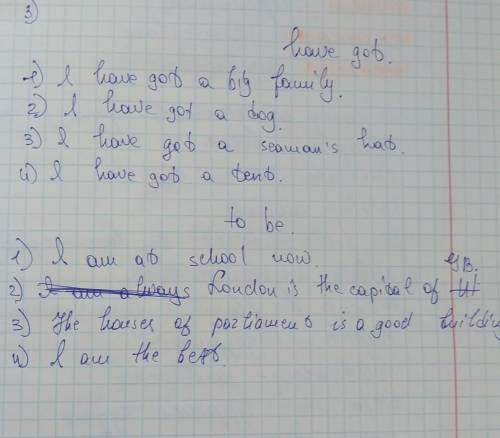 3)
have got.
1) I have got a big family.
2) I have got a dog.
3) I have got a seaman's hat.
4) I have got a tent.
to be.
1) I am at school now.
2) I am always London is the capital of GB.
3) The houses of parliament is a good building
4) I am the best.